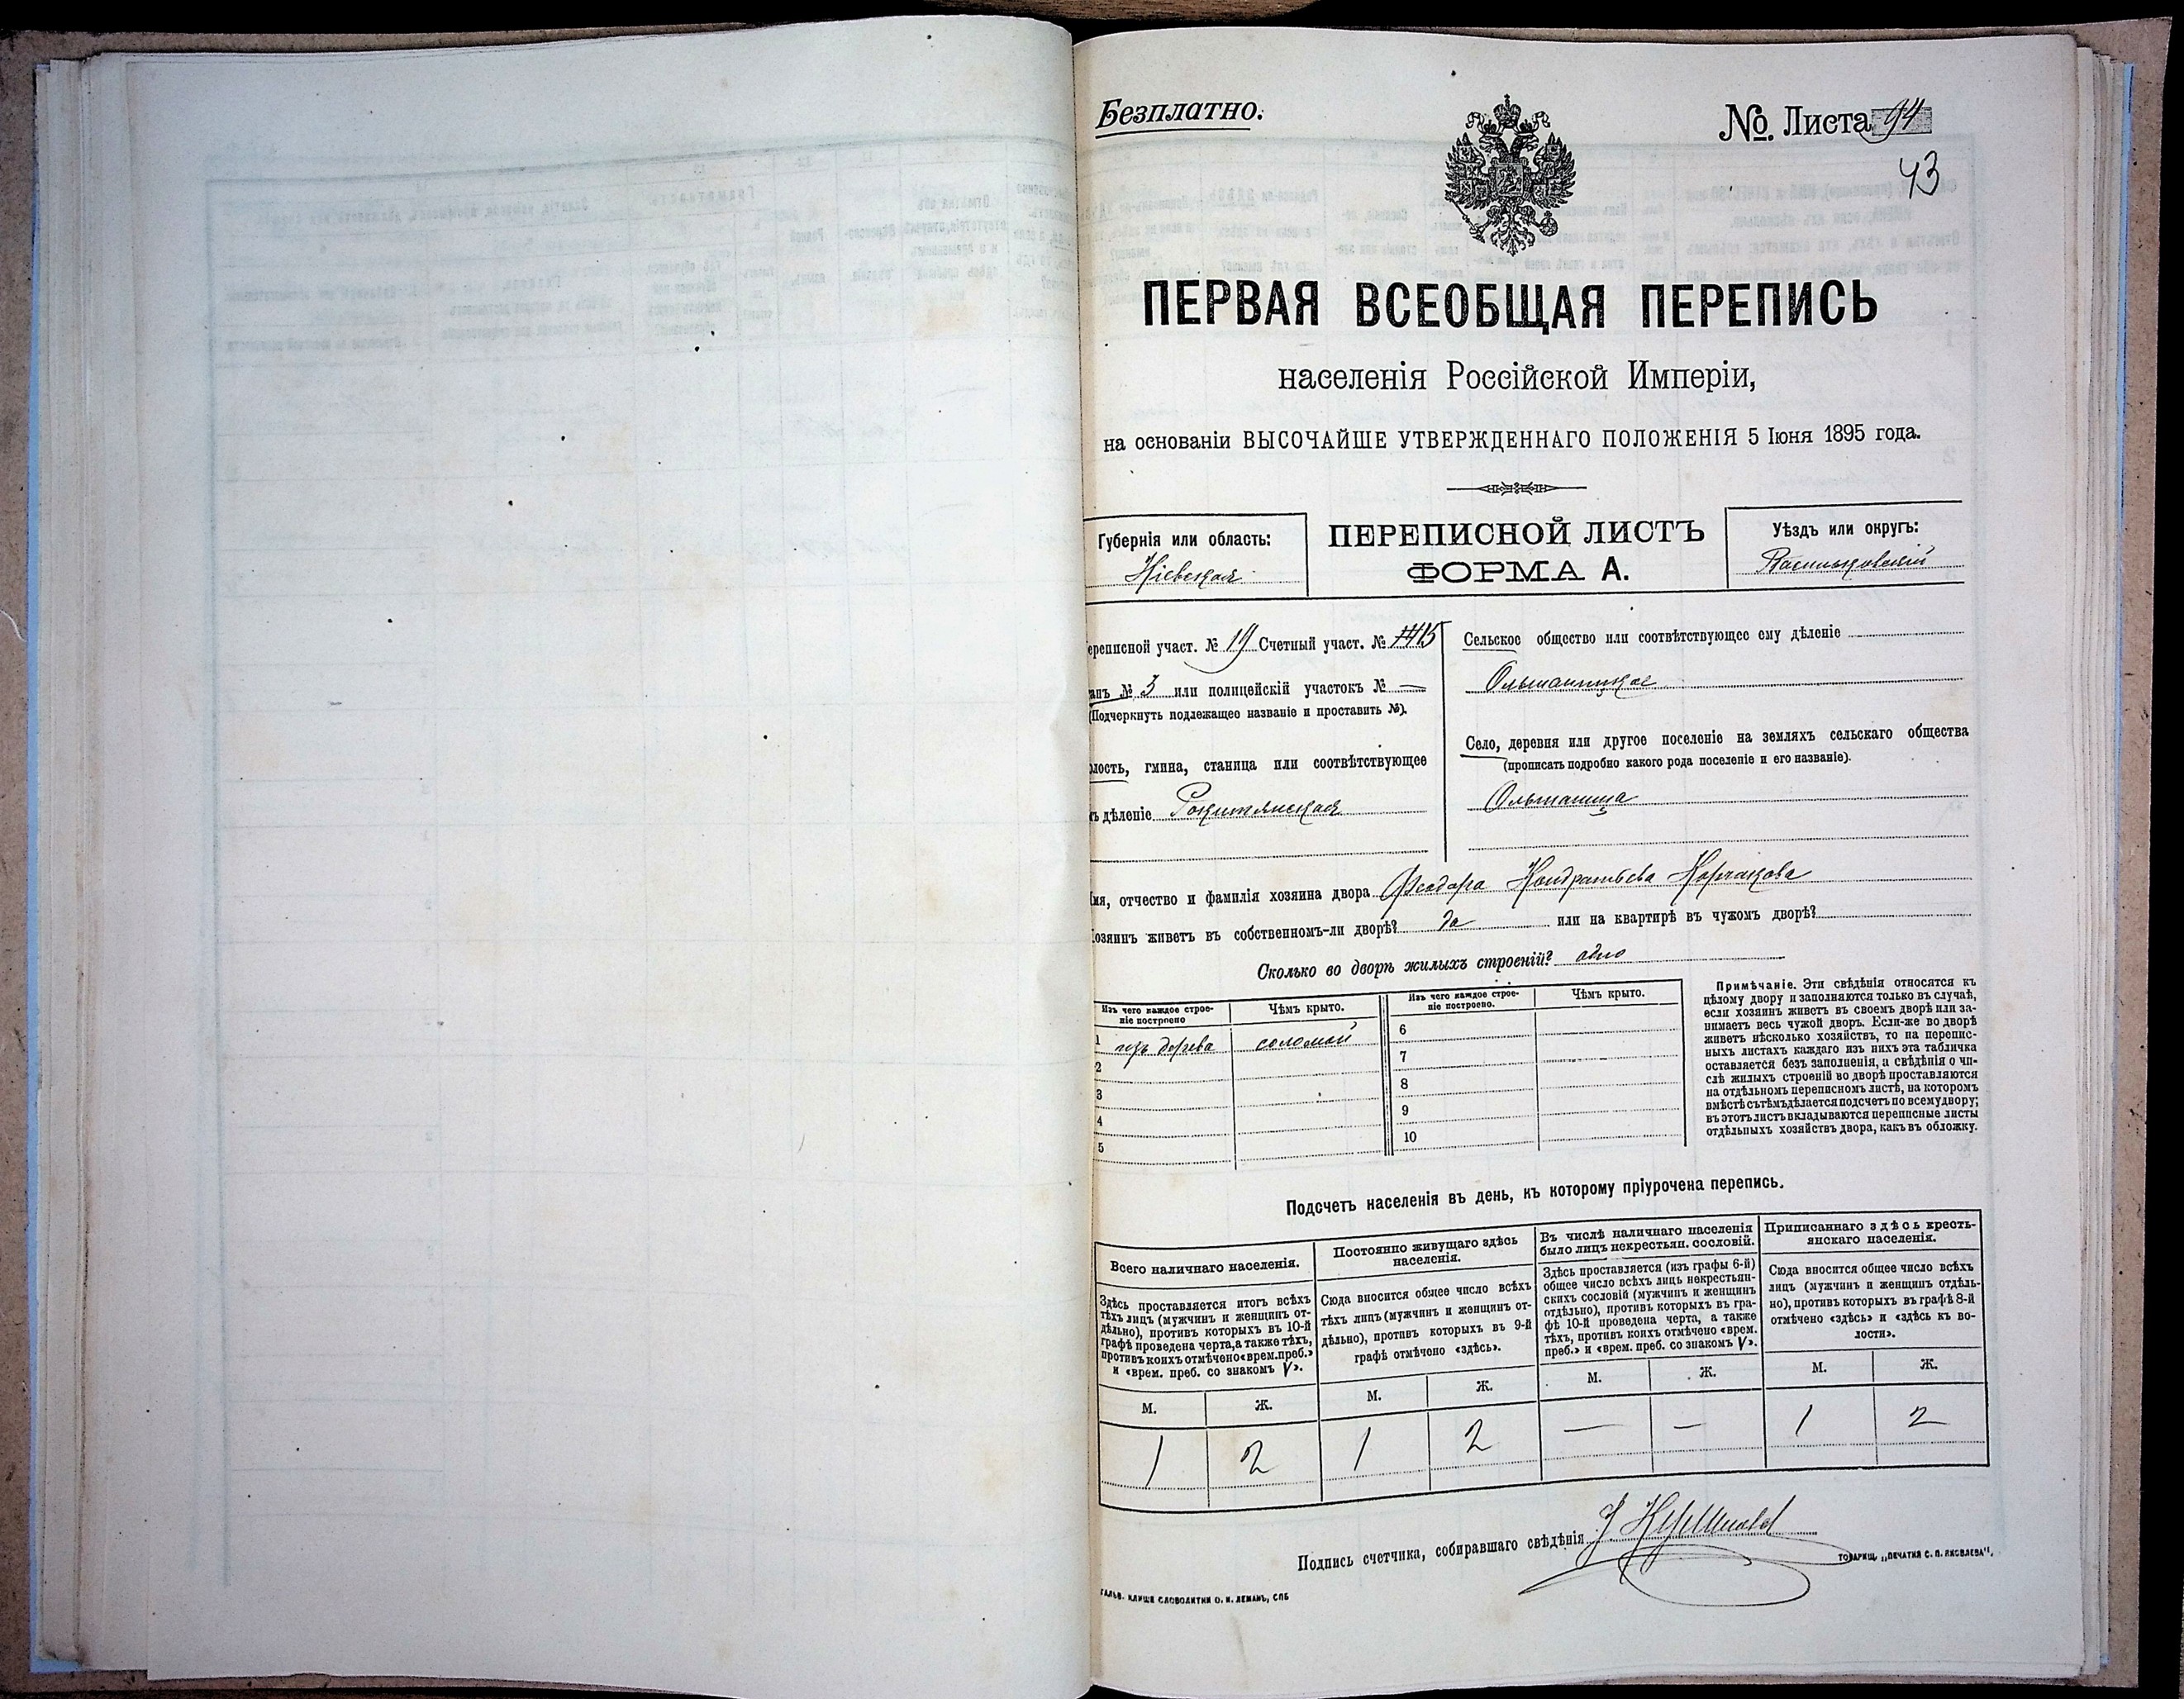 Безплатно.
№ Листа 94
43
ПЕРВАЯ ВСЕОБЩАЯ ПЕРЕПИСЬ
населенія Россійской Имперіи,
на основаніи ВЫСОЧАЙШЕ УТВЕРЖДЕННАГО ПОЛОЖЕНІЯ 5 Іюня 1895 года.
Губернія или область:
Кіевская
ПЕРЕПИСНОЙ ЛИСТЪ
ФОРМА А.
Уѣздъ или округъ:
Васильковскій
ереписной участ. № 19 Счетный участ. №
анъ № 3 или полицейскій участокъ № —
(Подчеркнуть подлежащее названіе и проставить №).
лость, гмина, станица или соотвѣтствующее
ъ дѣленіе Рокитянская
Сельское общество или соотвѣтствующее ему дѣленіе
Ольшаницкое
Село, деревня или другое поселеніе на земляхъ сельскаго общества
(прописать подробно какого рода поселеніе и его названіе).
Ольшаница
мя, отчество и фамилія хозяина двора Феодора Кондратьева Корчакова
озяинъ живетъ въ собственномъ-ли дворѣ? да или на квартирѣ въ чужомъ дворѣ?
Сколько во дворѣ жилыхъ строеній? одно
Изъ чего каждое строе-
ніе построено
Чѣмъ крыто.
Изъ чего каждое строе-
ніе построено.
Чѣмъ крыто.
1 изъ дерева соломой
2
3
4
5
6
7
8
9
10
Примѣчаніе. Эти свѣдѣнія относятся къ
цѣлому двору и заполняются только въ случаѣ,
если хозяинъ живетъ въ своемъ дворѣ или за-
нимаетъ весь чужой дворъ. Если-же во дворѣ
живетъ нѣсколько хозяйствъ, то на перепис-
ныхъ листахъ каждаго изъ нихъ эта табличка
оставляется безъ заполненія, а свѣдѣнія о чи-
слѣ жилыхъ строеній во дворѣ проставляются
на отдѣльномъ переписномъ листѣ, на которомъ
вмѣстѣ съ тѣмъ дѣлается подсчетъ по всему двору;
въ этотъ листъ вкладываются переписные листы
отдѣльныхъ хозяйствъ двора, какъ въ обложку.
Подсчетъ населенія въ день, къ которому пріурочена перепись.
Всего наличнаго населенія.
Здѣсь проставляется итогъ всѣхъ
тѣхъ лицъ (мужчинъ и женщинъ от-
дѣльно), противъ которыхъ въ 10-й
графѣ проведена черта, а также тѣхъ,
противъ коихъ отмѣчено «врем. преб.»
и «врем. преб. со знакомъ V».
М. Ж.
1 2
Постоянно живущаго здѣсь
населенія.
Сюда вносится общее число всѣхъ
тѣхъ лицъ (мужчинъ и женщинъ от-
дѣльно), противъ которыхъ въ 9-й
графѣ отмѣчено «здѣсь».
М. Ж.
1 2
Въ числѣ наличнаго населенія
было лицъ некрестьян. сословій.
Здѣсь проставляется (изъ графы 6-й)
общее число всѣхъ лицъ некрестьян-
скихъ сословій (мужчинъ и женщинъ
отдѣльно), противъ которыхъ въ гра-
фѣ 10-й проведена черта, а также
тѣхъ, противъ коихъ отмѣчено «врем.
преб.» и «врем. преб. со знакомъ V».
М. Ж.
— —
Приписаннаго здѣсь кресть-
янскаго населенія.
Сюда вносится общее число всѣхъ
лицъ (мужчинъ и женщинъ отдѣль-
но), противъ которыхъ въ графѣ 8-й
отмѣчено «здѣсь» и «здѣсь къ во-
лости».
М. Ж.
1 2
Подпись счетчика, собиравшаго свѣдѣнія
ГАЛЬВ. КЛИШЕ СЛОВОЛИТНИ О. И. ЛЕМАНЪ, СПБ
ТОВАРИЩ. „ПЕЧАТНЯ С. П. ЯКОВЛЕВА“.